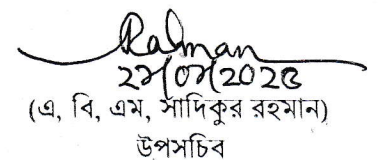 Rahman
২৮/০৮/২০২৫
(এ, বি, এম, সাদিকুর রহমান)
উপসচিব